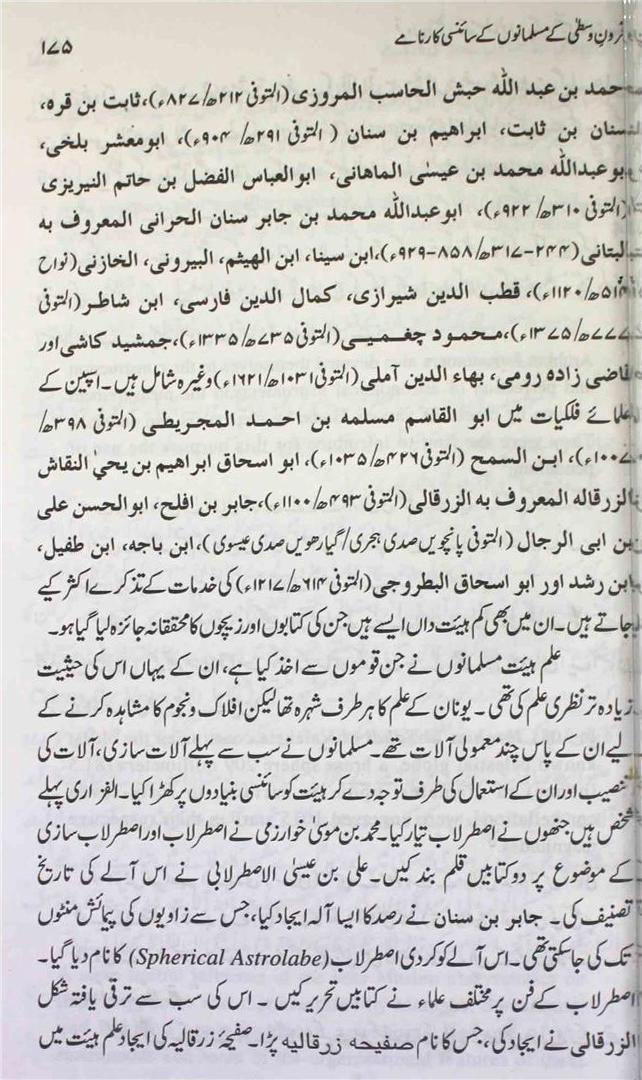 قرونِ وسطیٰ کے مسلمانوں کے سائنسی کارنامے ۱۷۵
احمد بن عبد اللہ حبش الحاسب المروزی (المتوفی ۲۱۲ھ/۸۲۷ء)، ثابت بن قرہ،
سنان بن ثابت، ابراہیم بن سنان ( المتوفی ۲۹۱ھ/ ۹۰۴ء)، ابومعشر بلخی،
ابوعبداللہ محمد بن عیسٰی الماھانی، ابوالعباس الفضل بن حاتم النیریزی
(المتوفی ۳۱۰ھ/ ۹۲۲ء)، ابوعبداللہ محمد بن جابر سنان الحرانی المعروف به
البتانی (۲۴۴-۳۱۷ھ/۸۵۸-۹۲۹ء)، ابن سینا، ابن الہیثم، البیرونی، الخازنی (نواح
۵۱۴ھ/۱۱۲۰ء)، قطب الدین شیرازی، کمال الدین فارسی، ابن شاطر (المتوفی
۷۷۷ھ/۱۳۷۵ء)، محمود چغمینی (المتوفی ۷۳۵ھ/۱۳۳۵ء)، جمشید کاشی اور
قاضی زادہ رومی، بھاء الدین آملی (المتوفی ۱۰۳۱ھ/۱۶۲۱ء) وغیرہ شامل ہیں۔ اسپین کے
علمائے فلکیات میں ابو القاسم مسلمه بن احمد المجریطی (المتوفی ۳۹۸ھ/
۱۰۰۷ء)، ابن السمح (المتوفی ۴۲۶ھ/۱۰۳۵ء)، ابو اسحاق ابراہیم بن یحیٰ النقاش
الزرقاله المعروف به الزرقالی (المتوفی ۴۹۳ھ/۱۱۰۰ء)، جابر بن افلح، ابوالحسن علی
بن ابی الرجال (المتوفی پانچویں صدی ہجری/گیارھویں صدی عیسوی)، ابن باجه، ابن طفیل،
ابن رشد اور ابو اسحاق البطروجی (المتوفی ۶۱۴ھ/۱۲۱۷ء) کی خدمات کے تذکرے اکثر کیے
جاتے ہیں۔ ان میں بھی کم ہیئت داں ایسے ہیں جن کی کتابوں اور زیچوں کا محققانہ جائزہ لیا گیا ہو۔
علم ہیئت مسلمانوں نے جن قوموں سے اخذ کیا ہے، ان کے یہاں اس کی حیثیت
زیادہ تر نظری علم کی تھی۔ یونان کے علم کا ہر طرف شہرہ تھا لیکن افلاک و نجوم کا مشاہدہ کرنے کے
لیے ان کے پاس چند معمولی آلات تھے۔ مسلمانوں نے سب سے پہلے آلات سازی، آلات کی
تنصیب اور ان کے استعمال کی طرف توجہ دے کر ہیئت کو سائنسی بنیادوں پر کھڑا کیا۔ الفزاری پہلے
شخص ہیں جنھوں نے اصطرلاب تیار کیا۔ محمد بن موسیٰ خوارزمی نے اصطرلاب اور اصطرلاب سازی
کے موضوع پر دو کتابیں قلم بند کیں۔ علی بن عیسیٰ الاصطرلابی نے اس آلے کی تاریخ
تصنیف کی۔ جابر بن سنان نے رصد کا ایسا آلہ ایجاد کیا، جس سے زاویوں کی پیمائش منٹوں
تک کی جاسکتی تھی۔ اس آلے کو کروی اصطرلاب (Spherical Astrolabe) کا نام دیا گیا۔
اصطرلاب کے فن پر مختلف علماء نے کتابیں تحریر کیں ۔ اس کی سب سے ترقی یافتہ شکل
الزرقالی نے ایجاد کی، جس کا نام صفیحه زرقالیه پڑا۔ صفیحۂ زرقالیہ کی ایجاد علم ہیئت میں